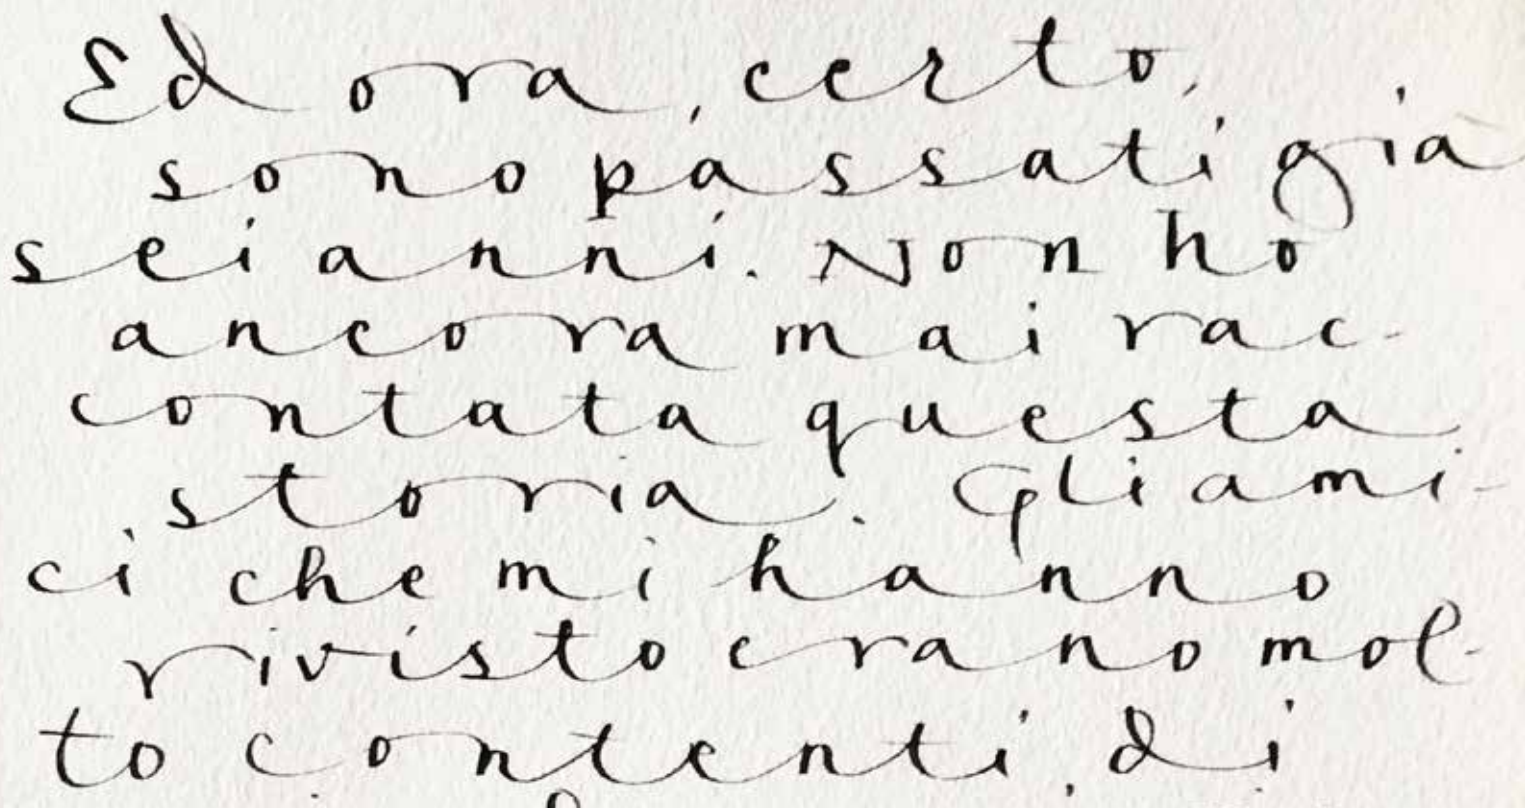 Ed ora, certo,
sono passati già
sei anni. Non ho
ancora mai rac-
contata questa
storia. Gli ami-
ci che mi hanno
rivisto erano mol-
to contenti di